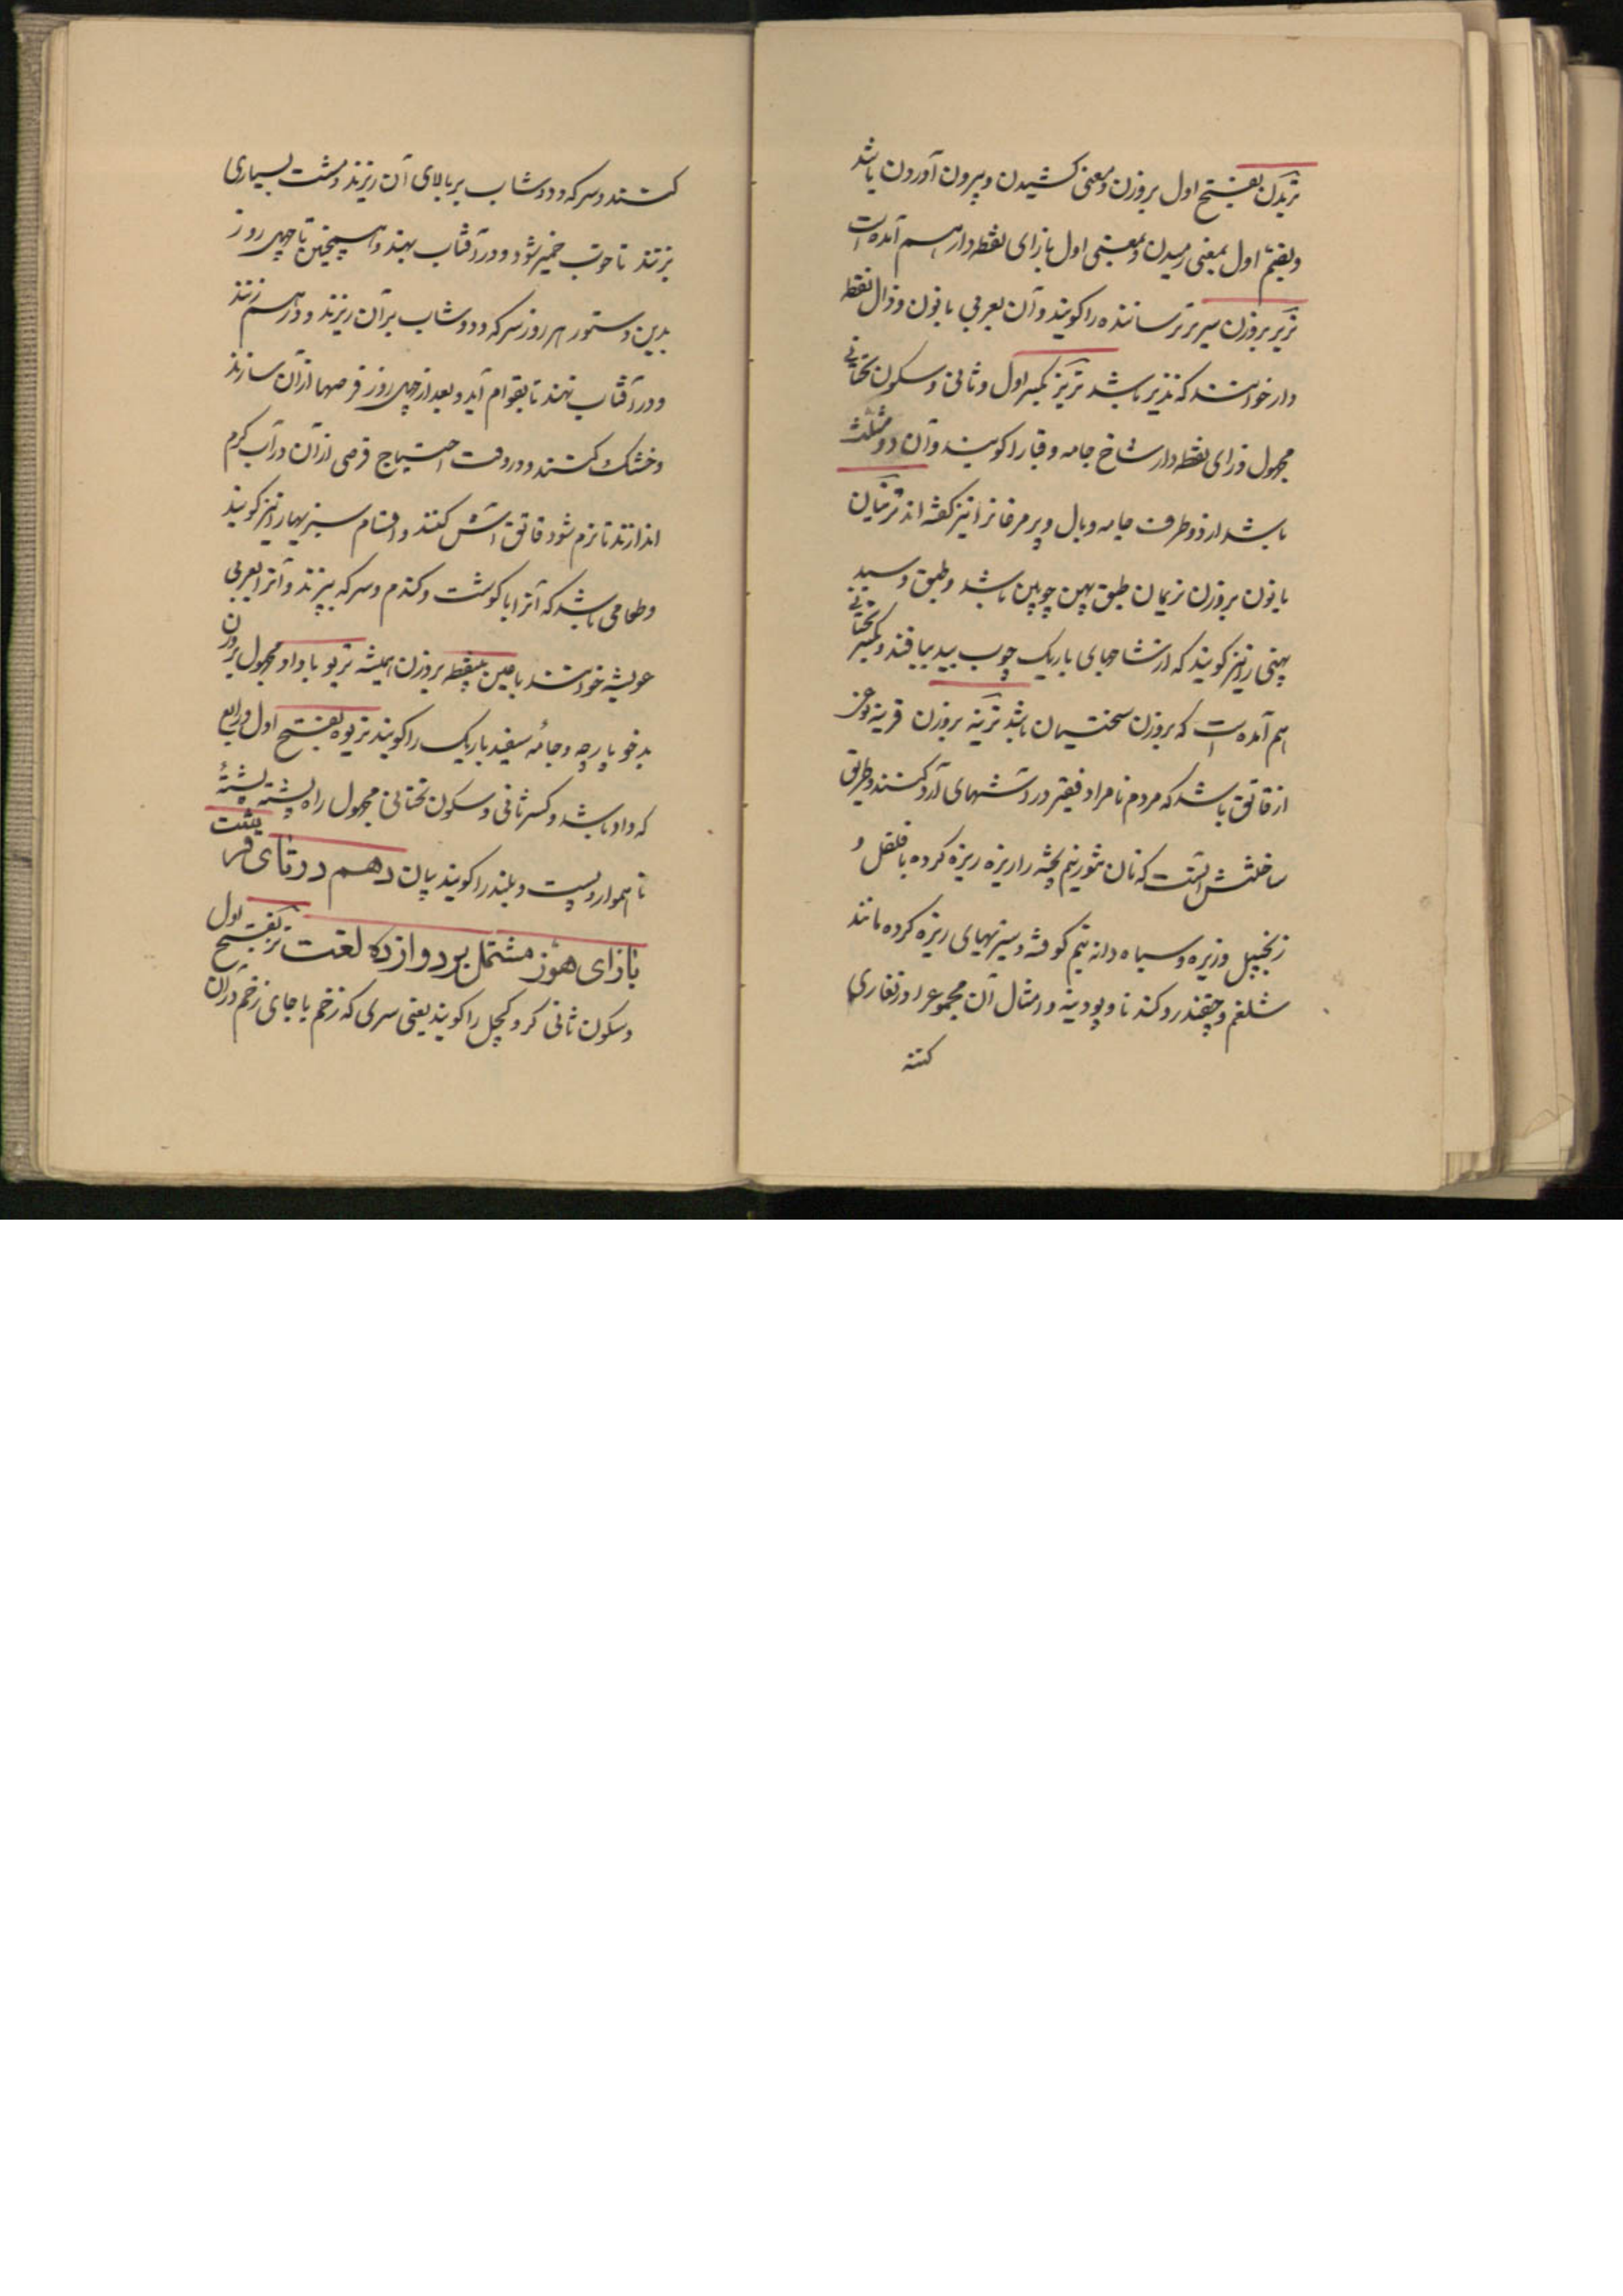 تریدن بفتح اول بروزن و معنی کشیدن و بیرون آوردن باشد
و بضم اول بمعنی رمیدن و بمعنی اول بازای نقطه دار هم آمده است
تریر بروزن سریر ترساننده را کویند و آن بعربی بانون و ذال نقطه
دار خوانند که نذیر باشد تریز بکسر اول و ثانی و سکون تحتانی
مجهول و زای نقطه دار شاخ جامه و قبا را کویند و آن دو مثلث
باشد از دو طرف جامه و بال و پر مرغانرا نیز کفته اند ترینان
بانون بروزن نریمان طبق پهن چوبین باشد و طبق و سبد
پهنی را نیز کویند که از شاخهای باریک چوب بید ببافند و بکسر تحتانی
هم آمده است که بروزن سختیمان باشد ترینه بروزن قرینه نوعی
از قاتق باشد که مردم نامراد و فقیر در آشهای آرد کنند و طریق
ساختنش آنست که نان تنور نیم پخته را ریزه ریزه کرده با فلفل و
زنجبیل و زیره و سیاه دانه نیم کوفته و سبزیهای ریزه کرده مانند
شلغم و چقندر و کندنا و پودینه و امثال آن مجموع را در تغاری
کنند
کنند و سرکه و دوشاب بر بالای آن ریزند و مشت بسیاری
بزنند تا خوب خمیر شود و در آفتاب نهند و همچنین تا چهل روز
بدین دستور هر روز سرکه و دوشاب بر آن ریزند و درهم زنند
و در آفتاب نهند تا بقوام آید و بعد از چهل روز قرصها از آن سازند
و خشک کنند و در وقت احتیاج قرصی از آن در آب کرم
اندازند تا نرم شود قاتق آش کنند و اقسام سبزیها را نیز کویند
و طعامی باشد که آنرا با کوشت و کندم و سرکه بپزند و آنرا بعربی
عویثه خوانند باعین بینقطه بروزن همیشه تریو باواو مجهول بروزن
بدخو پارچه و جامهٔ سفید باریک را کویند تریوه بفتح اول و رابع
که واو باشد و کسر ثانی و سکون تحتانی مجهول راه پشته پشتهٔ
ناهموار و پست و بلند را کویند بیان دهم در تای قرشت
بازای هوز مشتمل بر دوازده لغت تز بفتح اول
و سکون ثانی کر و کچل را کویند یعنی سری که زخم یا جای زخم در آن